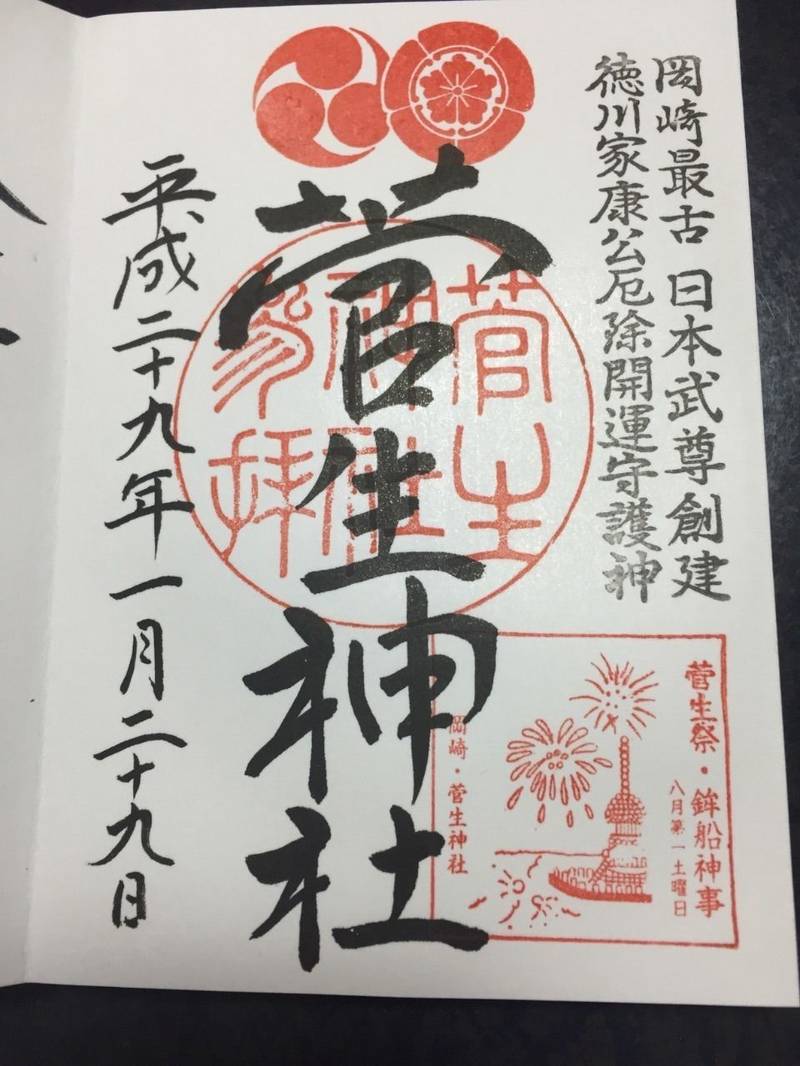 岡崎最古 日本武尊創建
徳川家康公厄除開運守護神
菅生神社
菅生
神社
参拝
菅生祭・鉾船神事
八月第一土曜日
岡崎・菅生神社
平成二十九年一月二十九日